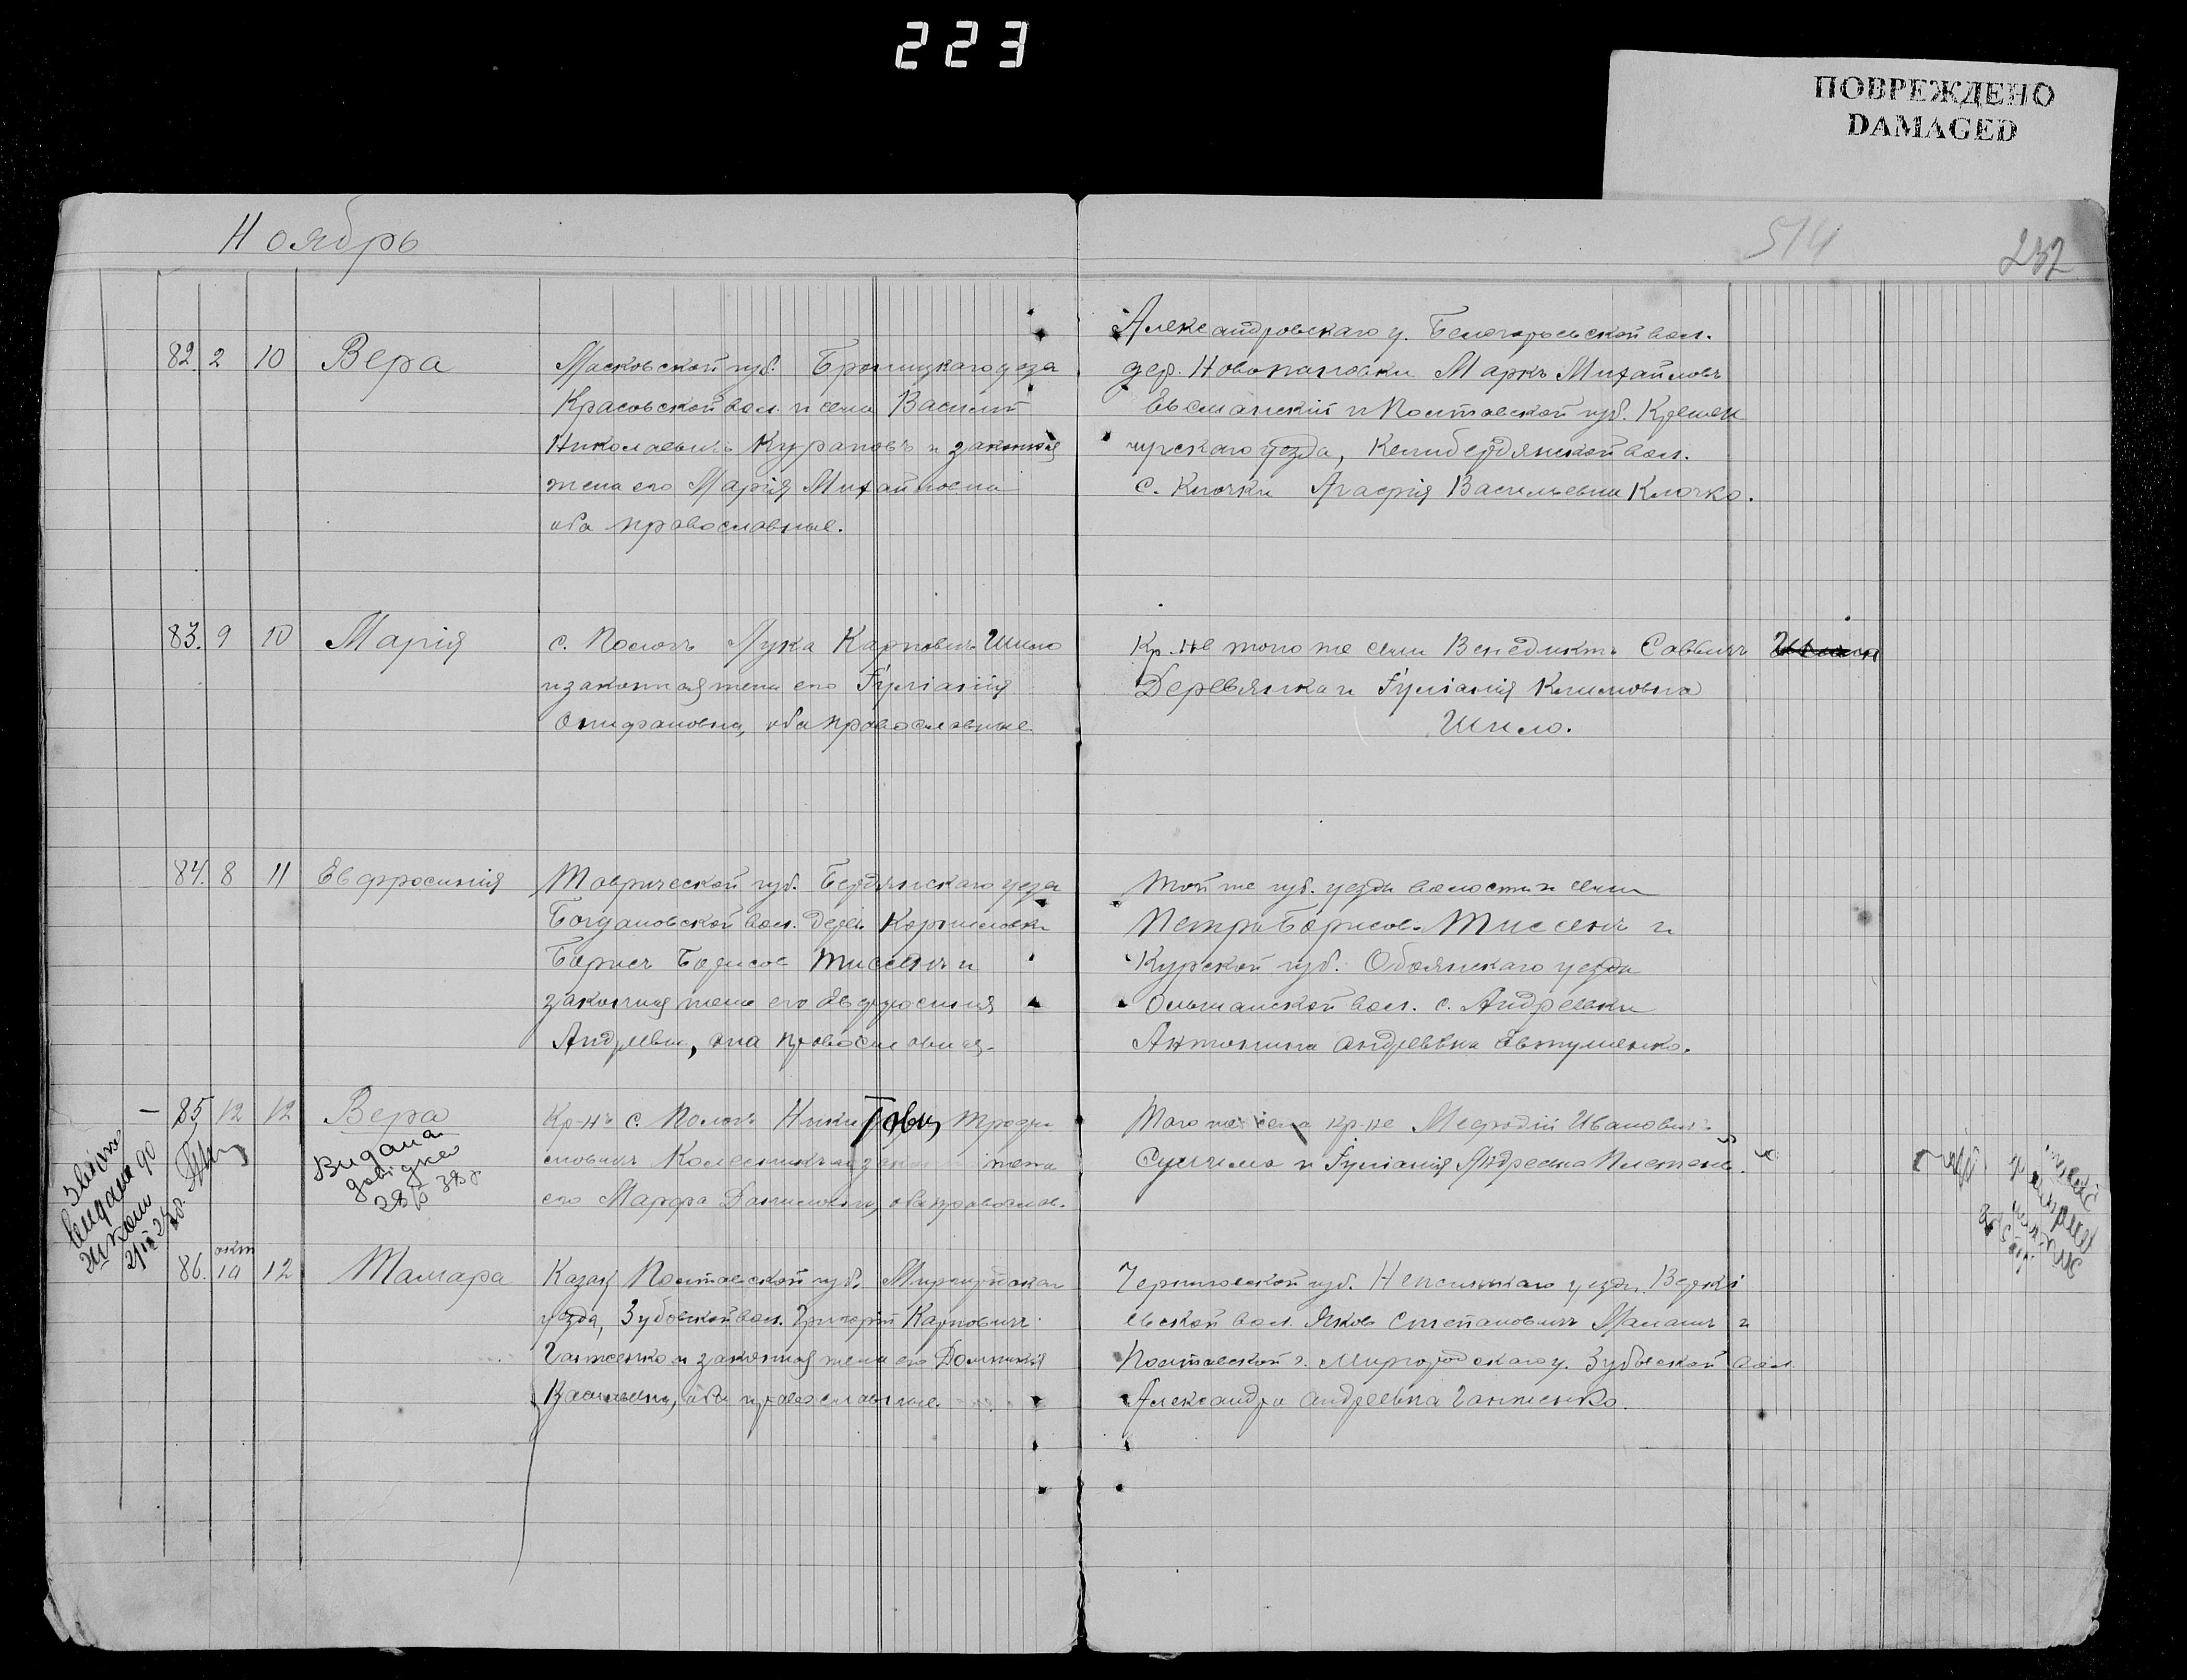 223
ПОВРЕЖДЕНО
DAMAGED
Ноябрь
514
232
82. 2 10 Вера
Московской губ. Бронницкаго уезда
Красовской вол. и села Василий
Николаевичъ Курановъ и законная
жена его Марія Михайловна
оба православные.
Александровскаго у. Белогорьевской вол.
дер. Новопановки Маркъ Михайловъ
и Полтавской губ. Кремен
чугскаго уезда, Келибердянской вол.
с. Клочки Агафія Васильевна Клочко.
83. 9 10 Марія
с. Пологъ Лука Карповичъ Шило
и законная жена его Іуліанія
Онуфріевна, оба православные
Кр-не того же села Венедиктъ Саввичъ
Деревянко и Іуліанія Климовна
Шило.
84. 8 11 Евфросинія
Таврической губ. Бердянскаго уезда
Богдановской вол. дерев. Корниловки
Борисъ Борисов Тиссенъ и
законная жена его Евфросинія
Андреевна, она православная.
Той же губ. уезда волости и села
Петръ Борисов. Тиссенъ и
Курской губ. Обоянскаго уезда
Ольшанской вол. с. Андреевки
Антонина Андреевна Евтушенко.
85 12 12 Вера
Кр-нъ с. Пологъ Никита Трофи
мовичъ Колесникъ и зак жена
его Марфа Даниловна, оба православ.
Видана
довідка
28/6 38 р
Того же села кр-не Мефодій Ивановичъ
и Іуліанія Андреевна Плетень.
86. окт 10 12 Тамара
Казак Полтавской губ. Миргородскаго
уезда, Зубовской вол. Григорій Карповичъ
Ганженко и законная жена его Домникія
Васильевна, оба православные.
Черниговской губ. Нежинскаго уезда, Веркі
евской вол. Яков Степановичъ Маланич и
Полтавской г. Миргородскаго у. Зубовской вол.
Александра Андреевна Ганженко.